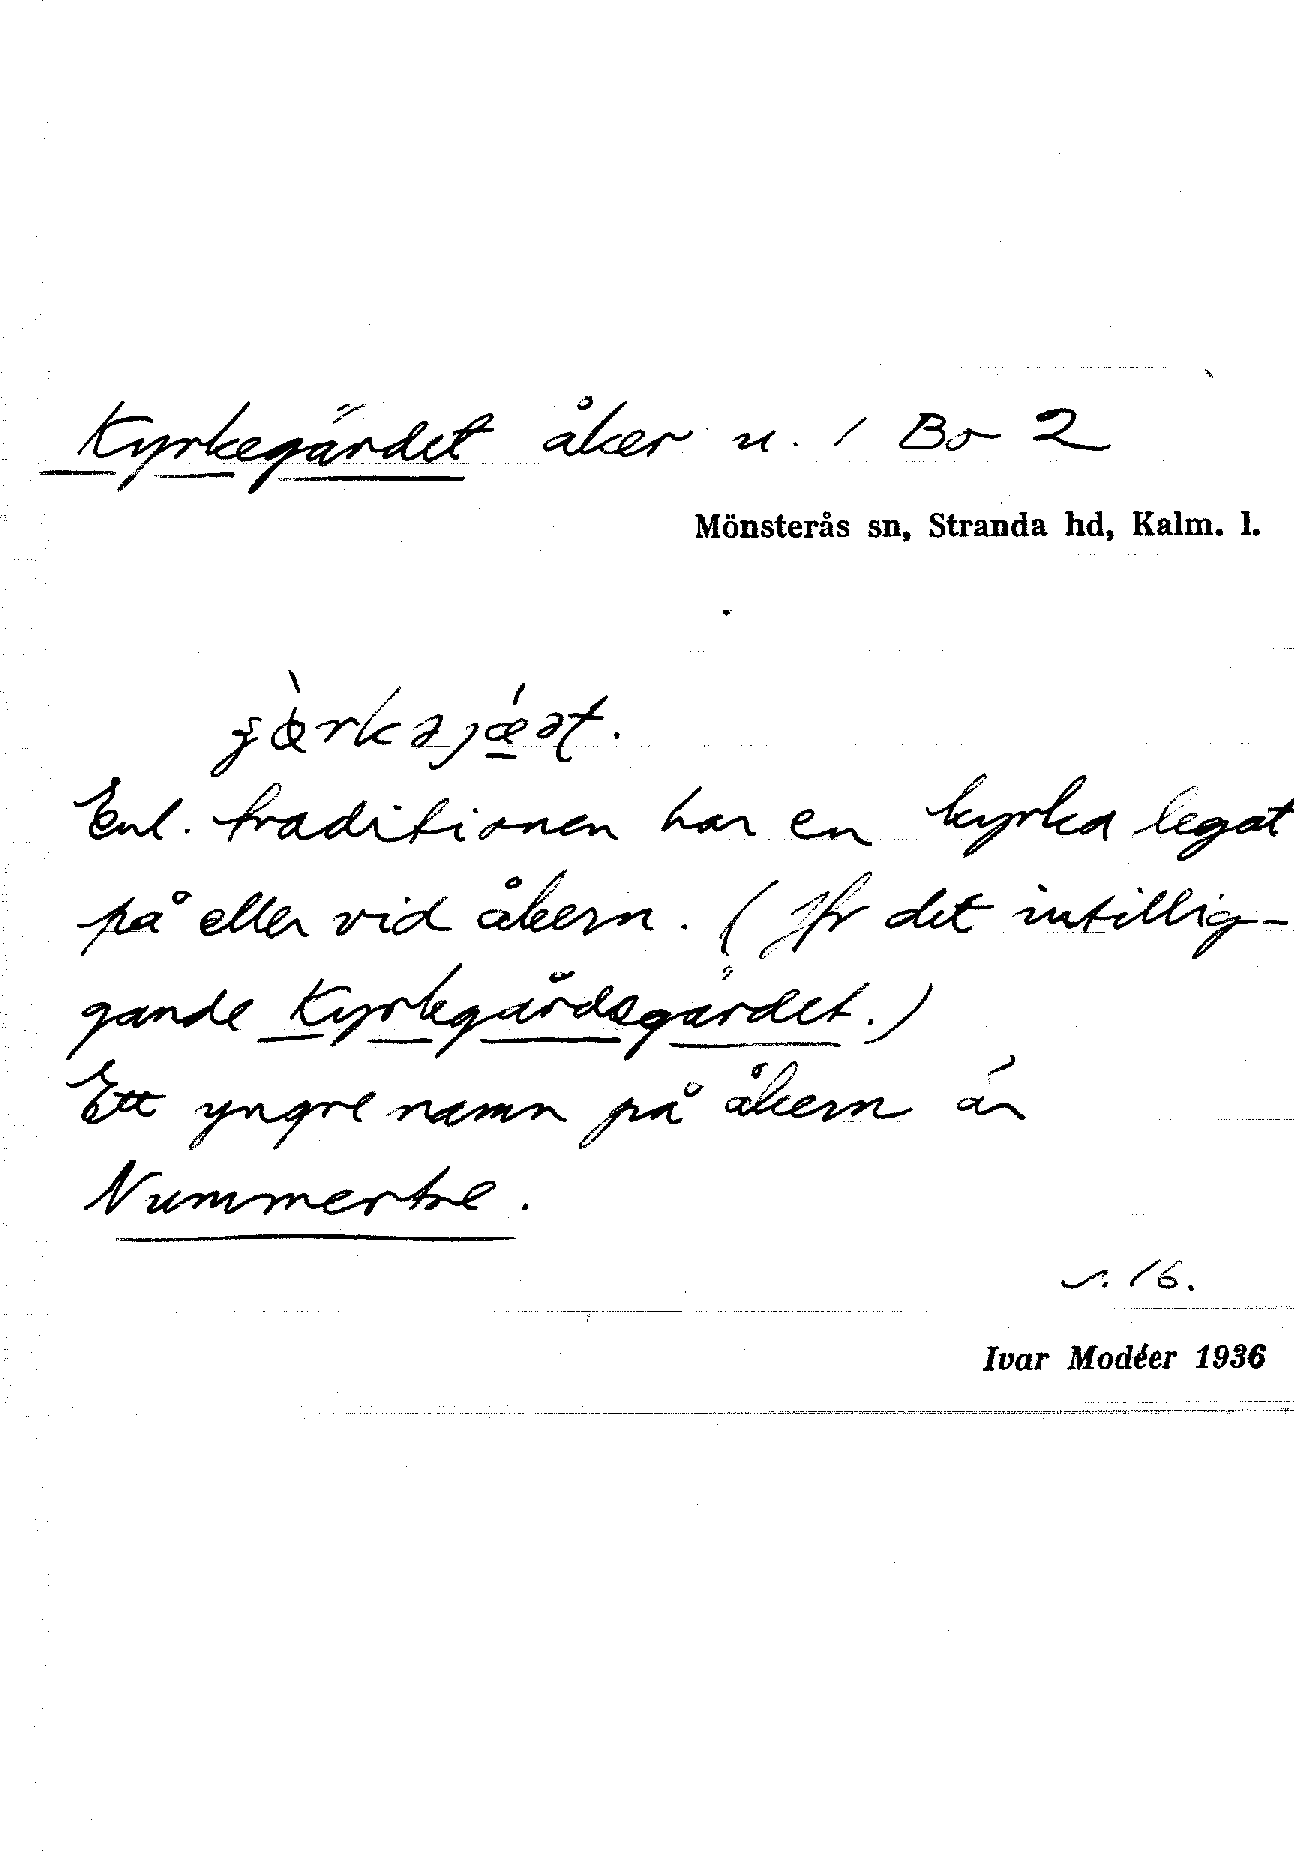 Kyrkegärdet åker u. 1 Bo 2
Mönsterås sn, Stranda hd, Kalm. l.
Enl. traditionen har en kyrka legat
på eller vid åkern. (Jfr det intillig-
gande Kyrkegårdsgärdet.)
Ett yngre namn på åkern är
Nummertre.
s. 16.
Ivar Modéer 1936